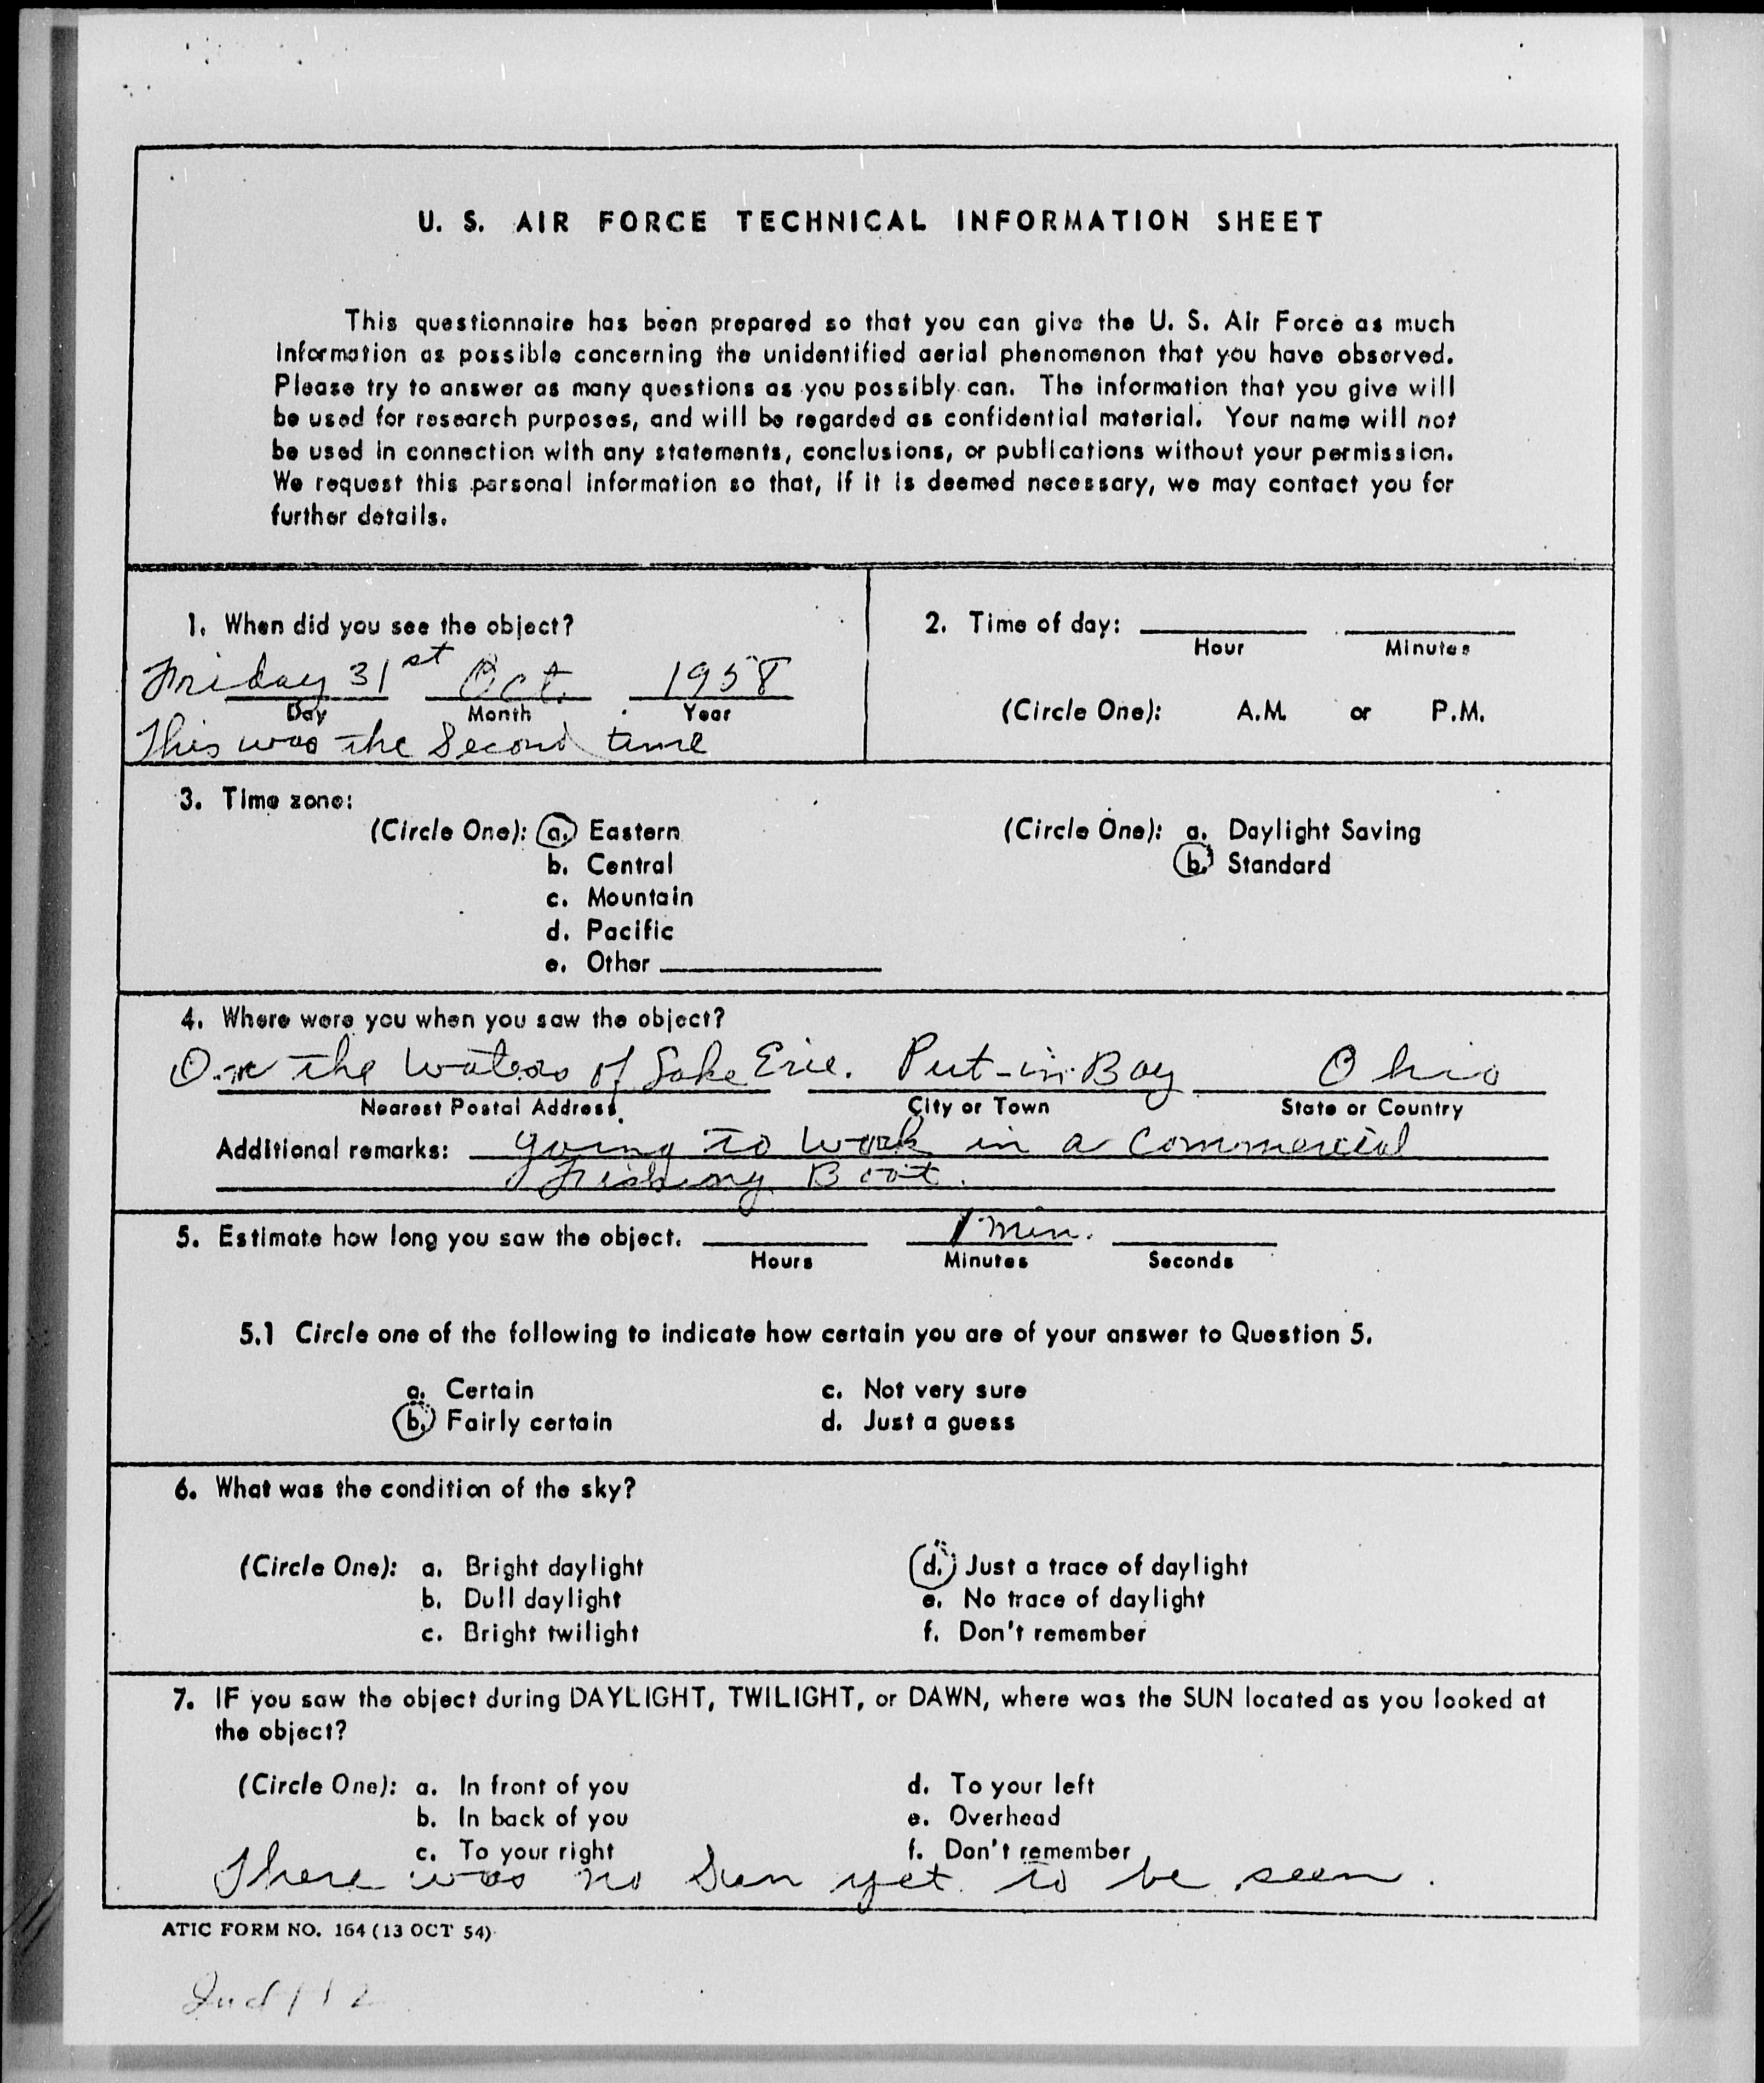 U. S. AIR FORCE TECHNICAL INFORMATION SHEET
This questionnaire has been prepared so that you can give the U. S. Air Force as much
information as possible concerning the unidentified aerial phenomenon that you have observed.
Please try to answer as many questions as you possibly can. The information that you give will
be used for research purposes, and will be regarded as confidential material. Your name will not
be used in connection with any statements, conclusions, or publications without your permission.
We request this personal information so that, if it is deemed necessary, we may contact you for
further details.
1. When did you see the object?
Friday 31st Oct. 1958
Day Month Year
This was the Second time
2. Time of day:
Hour Minutes
(Circle One): A.M. or P.M.
3. Time zone:
(Circle One): a. Eastern
b. Central
c. Mountain
d. Pacific
e. Other
(Circle One): a. Daylight Saving
b. Standard
4. Where were you when you saw the object?
On the Waters of Lake Erie. Put-in-Bay Ohio
Nearest Postal Address City or Town State or Country
Additional remarks: going to work in a Commercial
Fishing Boat.
5. Estimate how long you saw the object. 1 min.
Hours Minutes Seconds
5.1 Circle one of the following to indicate how certain you are of your answer to Question 5.
a. Certain c. Not very sure
b. Fairly certain d. Just a guess
6. What was the condition of the sky?
(Circle One): a. Bright daylight d. Just a trace of daylight
b. Dull daylight e. No trace of daylight
c. Bright twilight f. Don't remember
7. IF you saw the object during DAYLIGHT, TWILIGHT, or DAWN, where was the SUN located as you looked at
the object?
(Circle One): a. In front of you d. To your left
b. In back of you e. Overhead
c. To your right f. Don't remember
There was no Sun yet to be seen.
ATIC FORM NO. 164 (13 OCT 54)